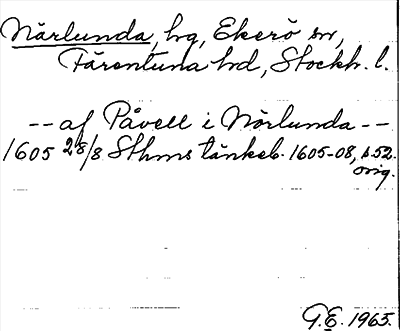 Närlunda, hg, Ekerö sn,
Färentuna hd, Stockh. l.
-- af Påvell i Nörlunda --
1605 28/8 Sthms tänkeb. 1605-08, s. 52.
orig.
G.E. 1965.